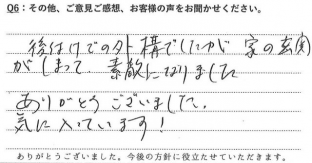 Q6：その他、ご意見ご感想、お客様の声をお聞かせください。
後付けでの外構でしたが 家の玄関
がしまって、素敵になりました
ありがとうございました。
気に入っています！
ありがとうございました。今後の方針に役立たせていただきます。